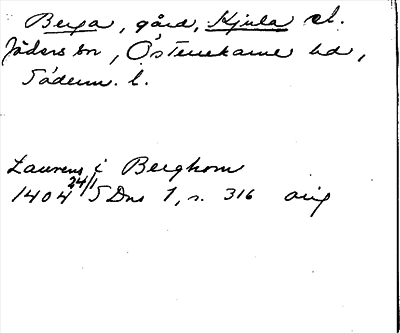 Berga, gård, Kjula el.
Jäders sn, Österrekarne hd,
Söderm. l.
Laurens i Berghom
1404 24/1 SDns 1, s. 316 orig